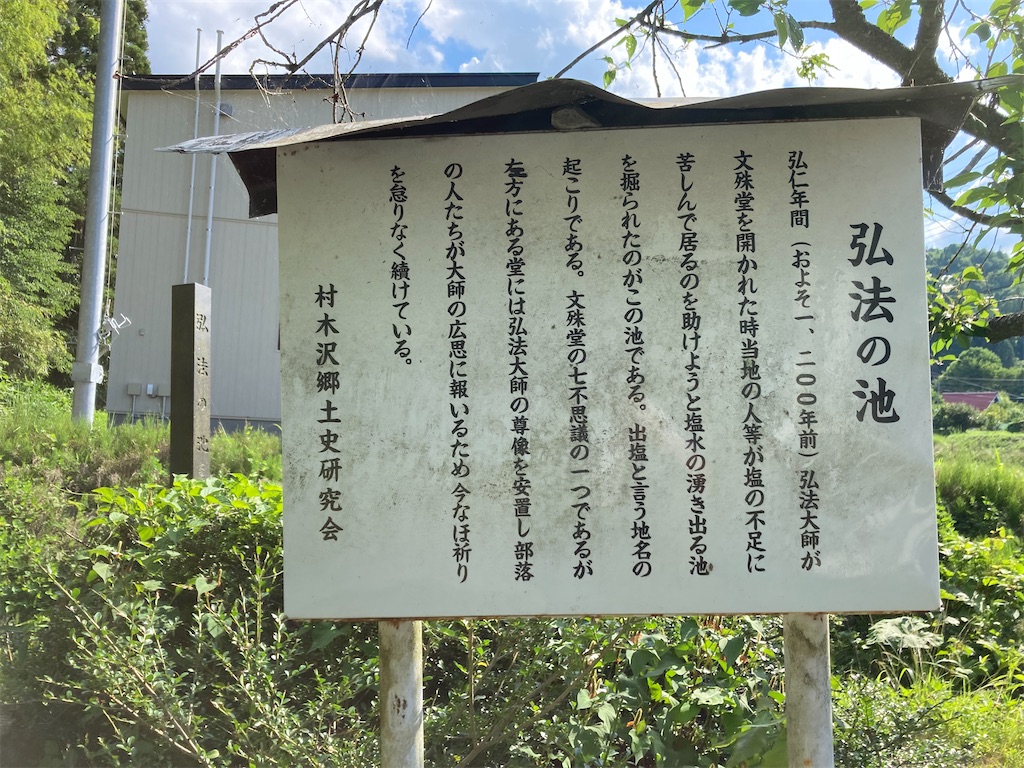 弘法の池
弘仁年間（およそ一、二〇〇年前）弘法大師が
文殊堂を開かれた時当地の人等が塩の不足に
苦しんで居るのを助けようと塩水の湧き出る池
を掘られたのがこの池である。出塩と言う地名の
起こりである。文殊堂の七不思議の一つであるが
左方にある堂には弘法大師の尊像を安置し部落
の人たちが大師の広思に報いるため今なほ祈り
を怠りなく續けている。
村木沢郷土史研究会
弘法の池